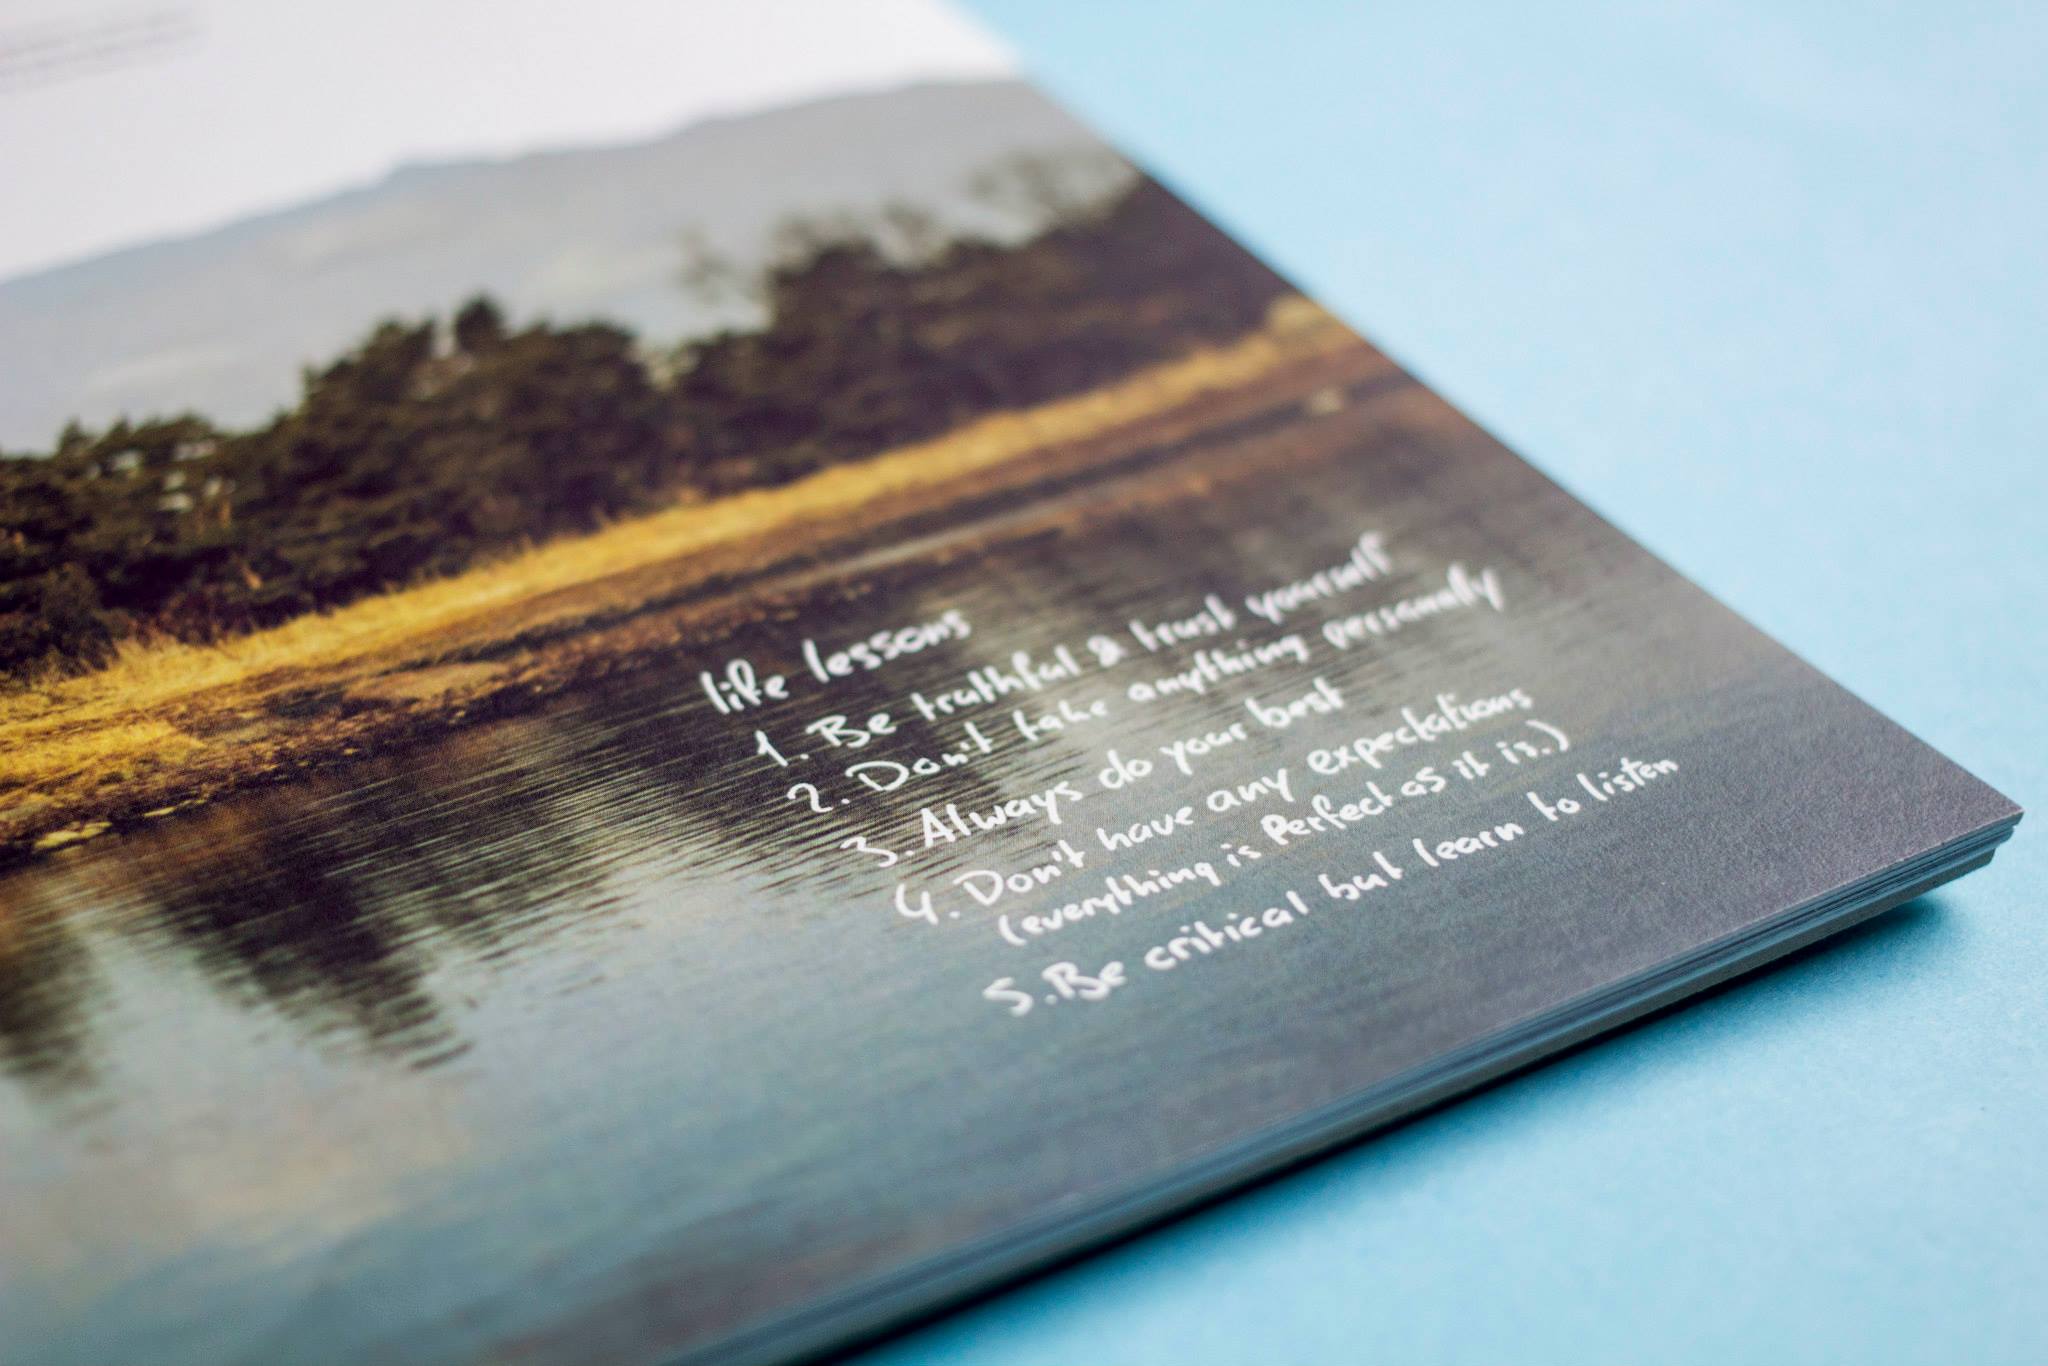 life lessons
1. Be truthful & trust yourself
2. Don't take anything personally
3. Always do your best
4. Don't have any expectations
(everything is Perfect as it is.)
5. Be critical but learn to listen